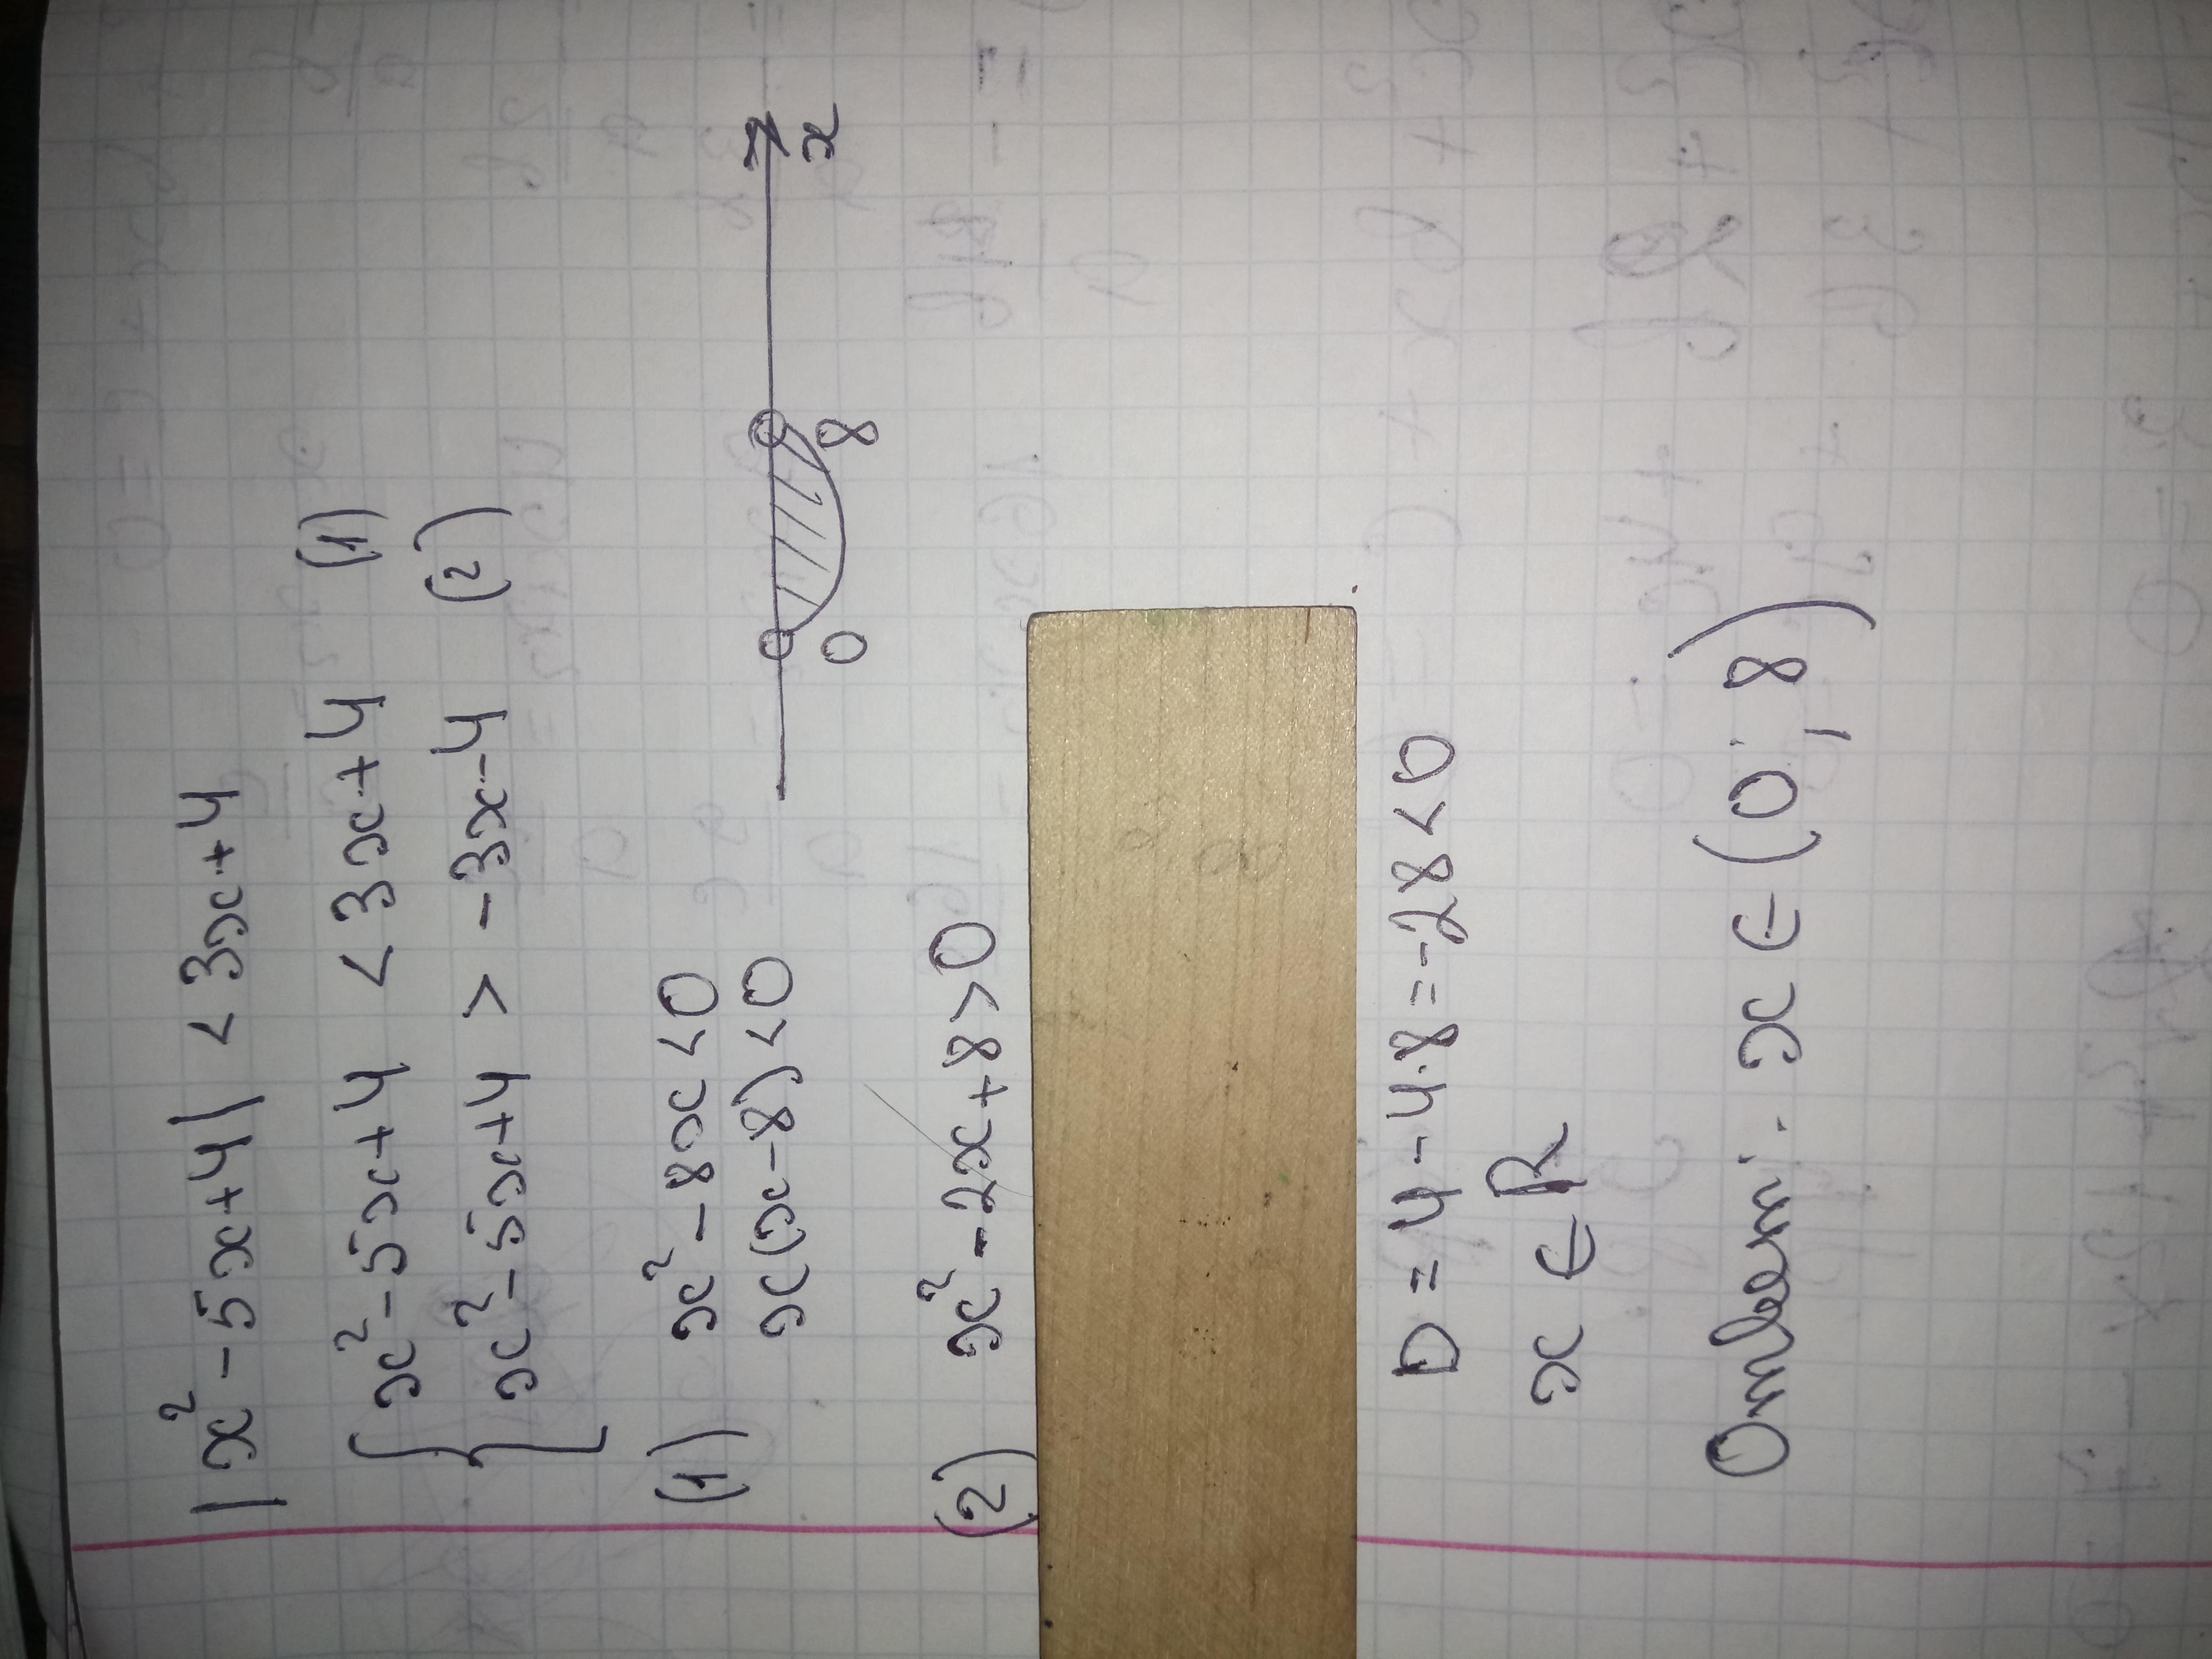 |x² - 5x + 4| < 3x + 4
{ x² - 5x + 4 < 3x + 4 (1)
x² - 5x + 4 > -3x - 4 (2)
(1) x² - 8x < 0
x(x - 8) < 0
0 8 x
(2) x² - 2x + 8 > 0
D = 4 - 4·8 = -28 < 0
x ∈ R
Ответ: x ∈ (0; 8)